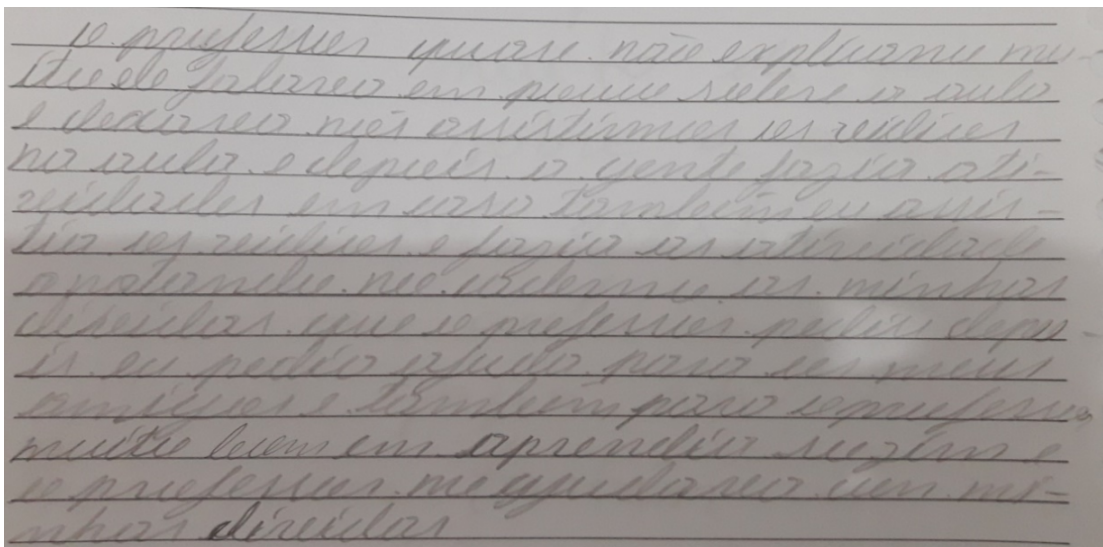 o professor quase não explicava mu-
ito ele falava um pouco sobre a aula
e deixava nós assistirmos os vídios
na aula e depois a gente fazia ati-
vidades em casa também eu assis-
tia os vídios e fazia as atividade
anotando no caderno as minhas
dúvidas que o professor pediu depo-
is eu pedia ajuda para os meus
amigos e também para o professor
muito bom em aprendia sozim e
o professor me ajudava con mi-
nhas dúvidas